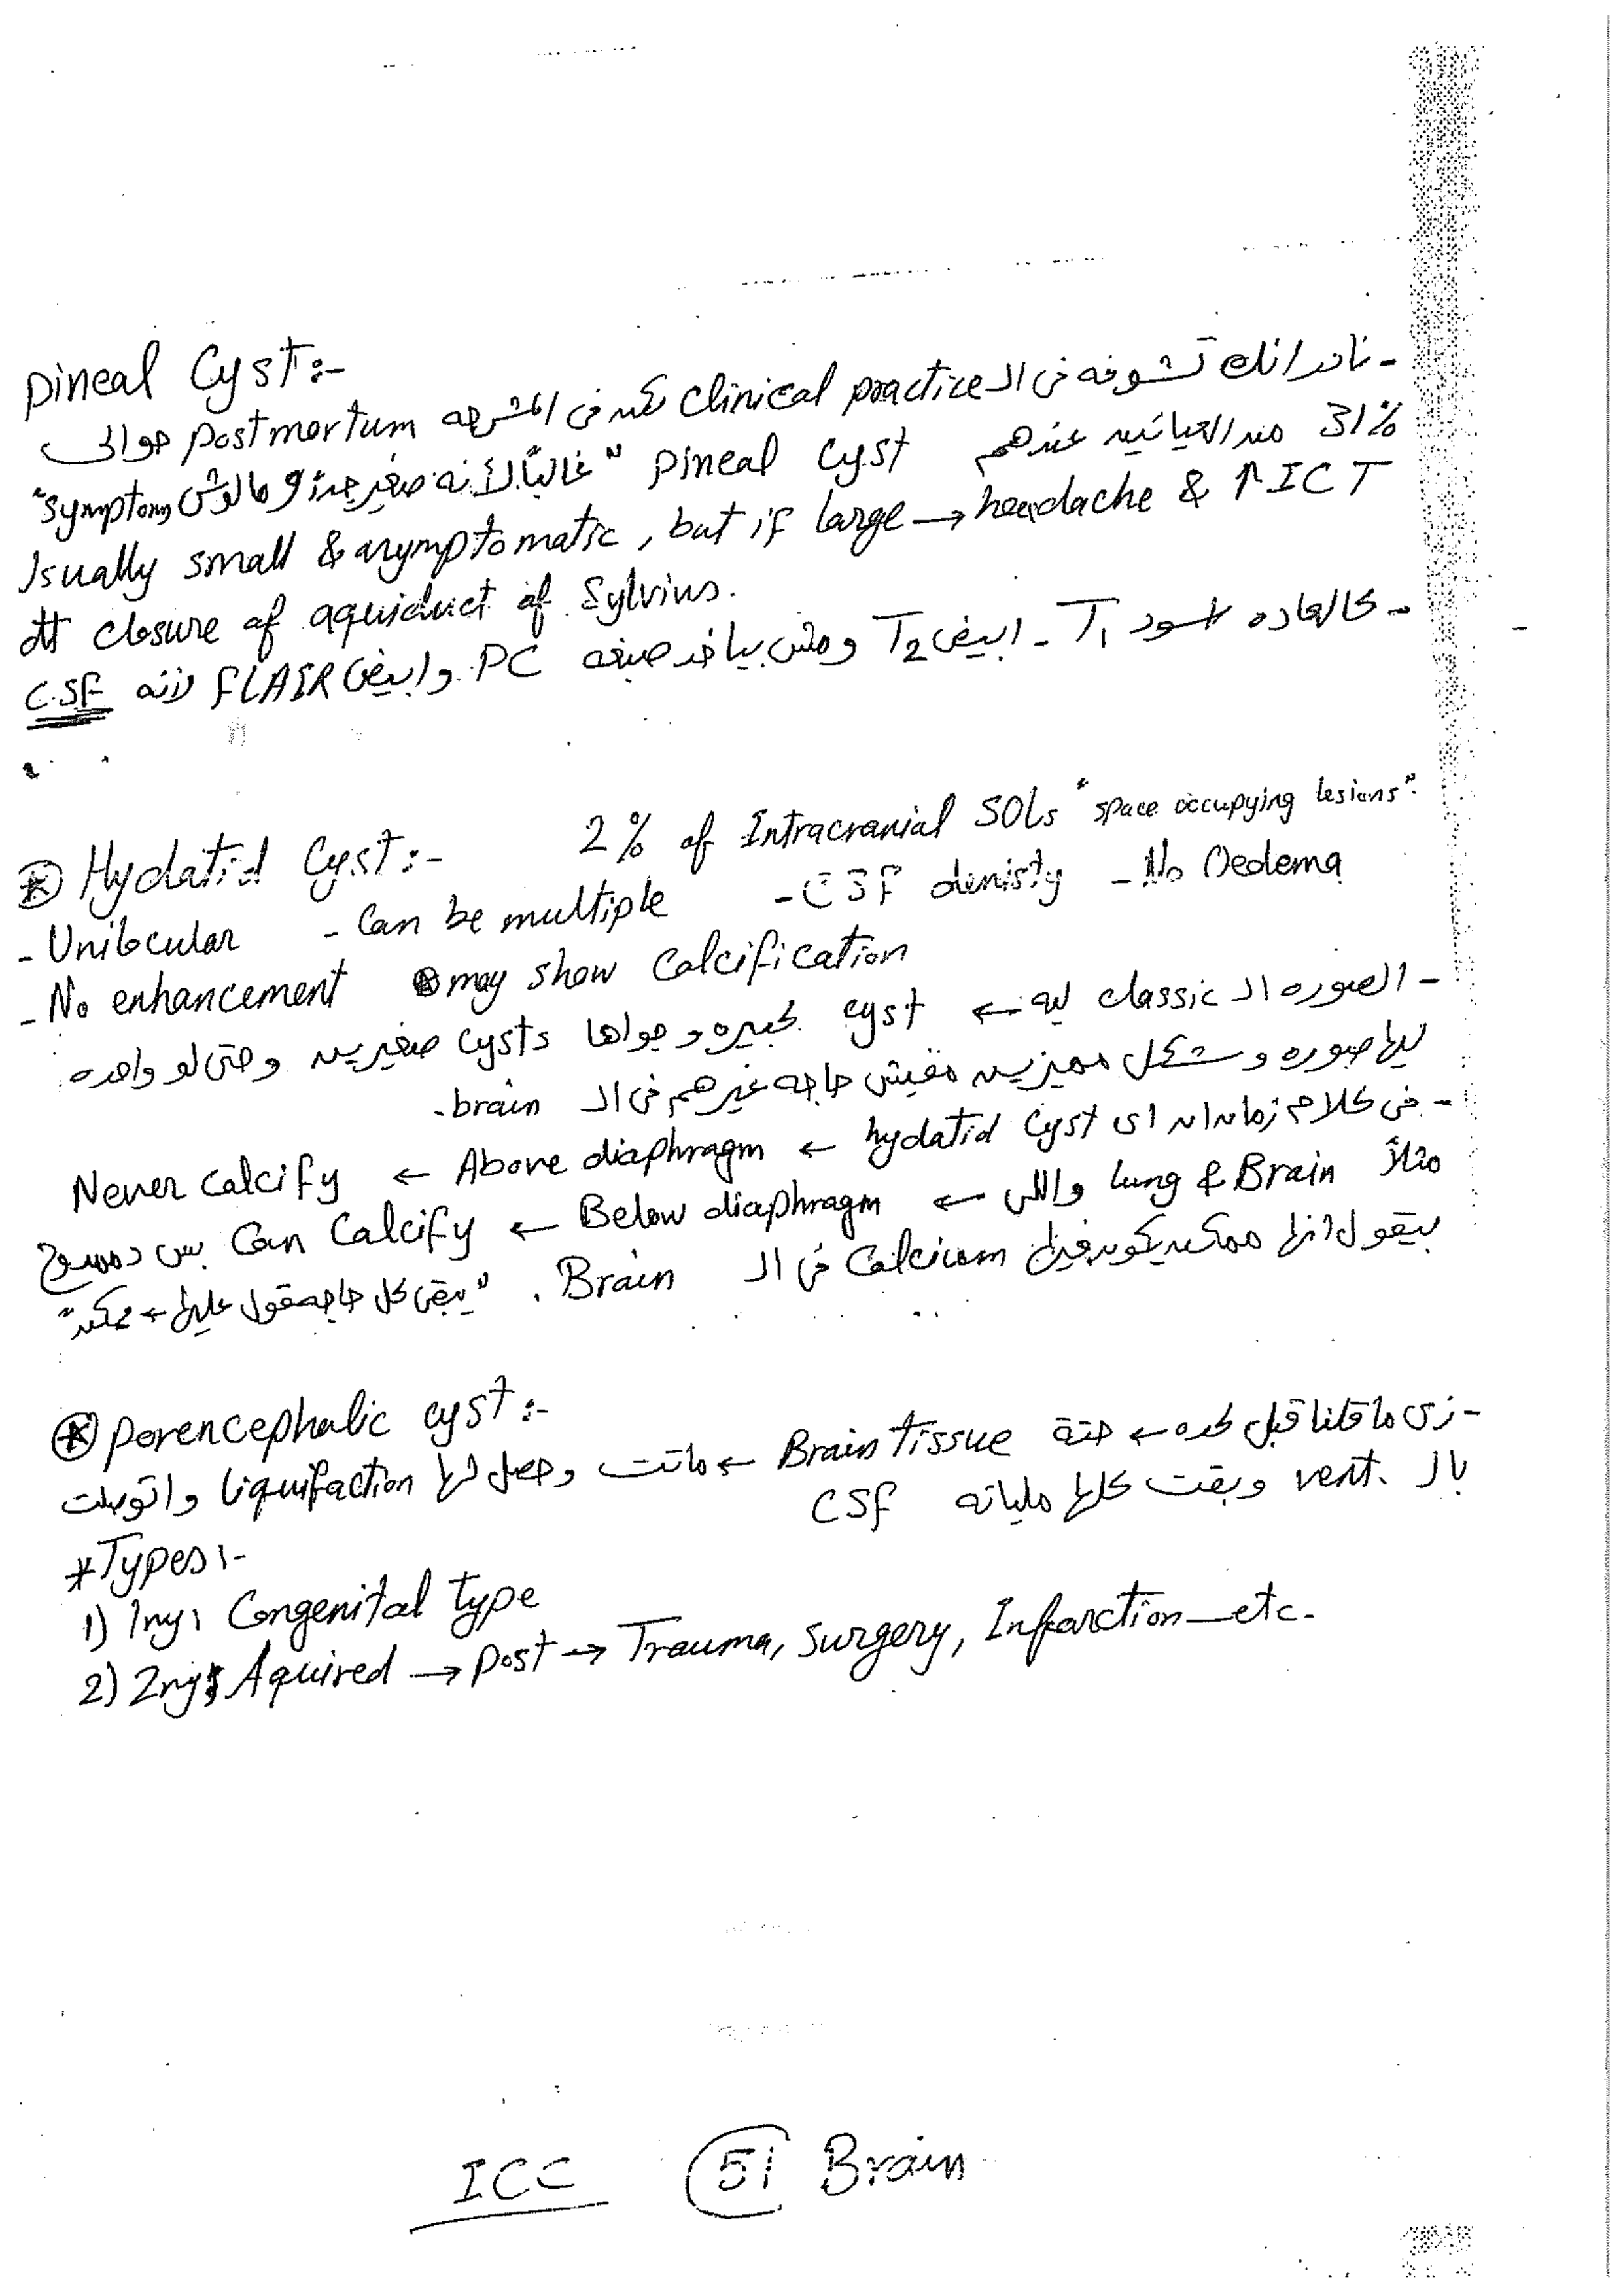 Pineal Cyst:-
- نادر انك تشوفه فى الـ clinical practice لكن فى المشرحه postmortum حوالى
31% من العيانين عندهم pineal cyst "غالباً لأنه صغير جداً و مالوش symptoms"
Usually small & asymptomatic, but if large → headache & ↑ICT
dt closure of aquiduct of Sylvius.
- كالعاده اسود T1 - ابيض T2 ومش بياخد صبغه PC. وابيض FLAIR لانه CSF
⊛ Hydatid Cyst:- 2% of Intracranial SOLs "space occupying lesions".
- Unilocular - Can be multiple - CSF denisty - No Oedema
- No enhancement ⊛ may show Calcification
- الصوره الـ classic ليه ← cyst كبيره و جواها cysts صغيرين وحتى لو واحده
ليها صوره و شكل مميزين مفيش حاجه غيرهم فى الـ brain.
- فى كلام زمان ان اى hydatid Cyst ← Above diaphragm ← Never calcify
مثلاً lung & Brain واللى ← Below diaphragm ← Can Calcify بس دمسوح
بيقول انها ممكن يكون فيها Calcium فى الـ Brain. "يبقى كل حاجه نقول عليها ← ممكن"
⊛ porencephalic cyst:-
- زى ما قلنا قبل كده ← حتة Brain tissue ← ماتت وحصل لها liquifaction واتوصلت
بالـ vent. وبقت كلها مليانه CSF
*Types:-
1) 1ry: Congenital type
2) 2ry: Aquired → post → Trauma, surgery, Infarction—etc.
ICC 51 Brain